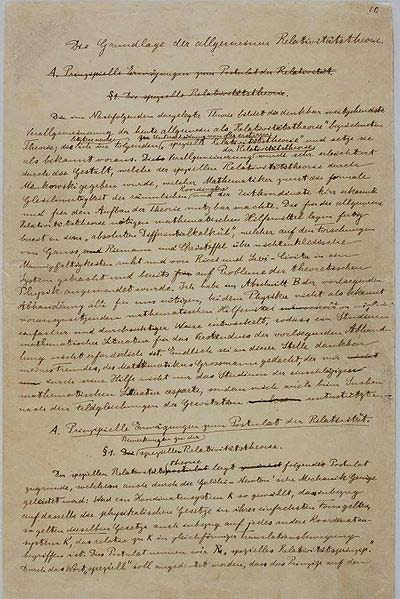 Die Grundlage der allgemeinen Relativitätstheorie.
A. Prinzipielle Erwägungen zum Postulat der Relativität.
§1. Die spezielle Relativitätstheorie.
Die im Nachfolgenden dargelegte Theorie bildet die denkbar weitgehendste
Verallgemeinerung der heute allgemein als „Relativitätstheorie" bezeichneten
Theorie; die letztere nenne ich im folgenden zur Unterscheidung von der ersteren „spezielle Relativitätstheorie" und setze sie
als bekannt voraus. Die Verallgemeinerung der Relativitätstheorie wurde sehr erleichtert
durch die Gestalt, welche der speziellen Relativitätstheorie durch
Minkowski gegeben wurde, welcher Mathematiker zuerst die formale
Gleichwertigkeit der räumlichen Koordinaten und der Zeitkoordinate klar erkannte
und für den Aufbau der Theorie nutzbar machte. Die für die allgemeine
Relativitätstheorie nötigen mathematischen Hilfsmittel lagen fertig
bereit in dem „absoluten Differentialkalkül", welcher auf den Forschungen
von Gauss, Riemann und Christoffel über nichteuklidische
Mannigfaltigkeiten ruht und von Ricci und Levi-Civita in ein
System gebracht und bereits auf Probleme der theoretischen
Physik angewendet wurde. Ich habe im Abschnitt B der vorliegenden
Abhandlung alle für uns nötigen, bei dem Physiker nicht als bekannt
vorauszusetzenden mathematischen Hilfsmittel in möglichst
einfacher und durchsichtiger Weise entwickelt, sodass ein Studium
mathematischer Literatur für das Verständnis der vorliegenden Abhand-
lung nicht erforderlich ist. Endlich sei an dieser Stelle dankbar
meines Freundes, des Mathematikers Grossmann gedacht, der mir
durch seine Hilfe nicht nur das Studium der einschlägigen
mathematischen Literatur ersparte, sondern mich auch beim Suchen
nach den Feldgleichungen der Gravitation unterstützte.
A. Prinzipielle Erwägungen zum Postulat der Relativität.
Bemerkungen zu der
§1. Die speziellen Relativitätstheorie.
Der speziellen Relativitätstheorie liegt folgendes Postulat
zugrunde, welchem auch durch die Galilei-Newton'sche Mechanik Genüge
geleistet wird: Wird ein Koordinatensystem K so gewählt, dass inbezug
auf dasselbe die physikalischen Gesetze in ihrer einfachsten Form gelten,
so gelten dieselben Gesetze auch inbezug auf jedes andere Koordinaten-
system K', das relativ zu K in gleichförmiger Translationsbewegung
begriffen ist. Dies Postulat nennen wir „spezielles Relativitätsprinzip."
Durch das Wort „speziell" soll angedeutet werden, dass das Prinzip auf den